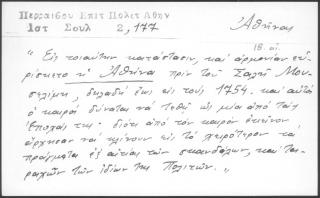 Περραιβου Επιτ Πολιτ Αθην
Ιστ Σουλ 2, 177
Ἀθῆναι
18. αἰ.
"Εἰς τοιαύτην κατάστασιν, καὶ ἁρμονίαν εὑ-
ρίσκετο ἡ Ἀθῆνα πρὶν τοῦ Σαρῆ Μου-
σελίμη, δηλαδὴ ἕως εἰς τοὺς 1754. καὶ αὐτὸ
ὁ καιρὸς δύναται νὰ τεθῇ ὡς μία ἀπὸ ταῖς
ἐποχαῖς της· διότι ἀπὸ τὸν καιρὸν ἐκεῖνον
ἄρχησαν νὰ κλίνουν εἰς τὸ χειρότερον τὰ
πράγματα ἐξ αἰτίας τῶν σκανδάλων, καὶ ται-
ραχῶν τῶν ἰδίων της Πολιτῶν."